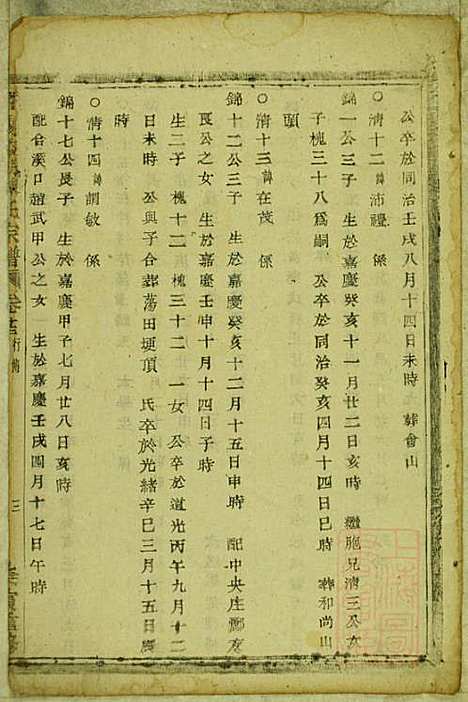 公卒於同治壬戌八月十四日未時 葬會山
○清十二諱沛禮 係
錦一公三子 生於嘉慶癸亥十一月廿二日亥時 繼胞兄清三公次
子槐三十八為嗣 公卒於同治癸亥四月十四日巳時 葬和尚山
頭
○清十三諱在茂 係
錦十二公三子 生於嘉慶癸亥十二月十五日申時 配中央庄鄭友
良公之女 生於嘉慶壬申十月十四日子時
生二子 槐十二 槐三十二 一女 公卒於道光丙午九月十二
日未時 公與子合葬蕩田埂頂 氏卒於光緒辛巳三月十五日辰
時
○清十四諱調敏 係
錦十七公長子 生於嘉慶甲子七月廿八日亥時
配合溪口趙武甲公之女 生於嘉慶壬戌四月十七日午時
宗譜 卷 行傳 三